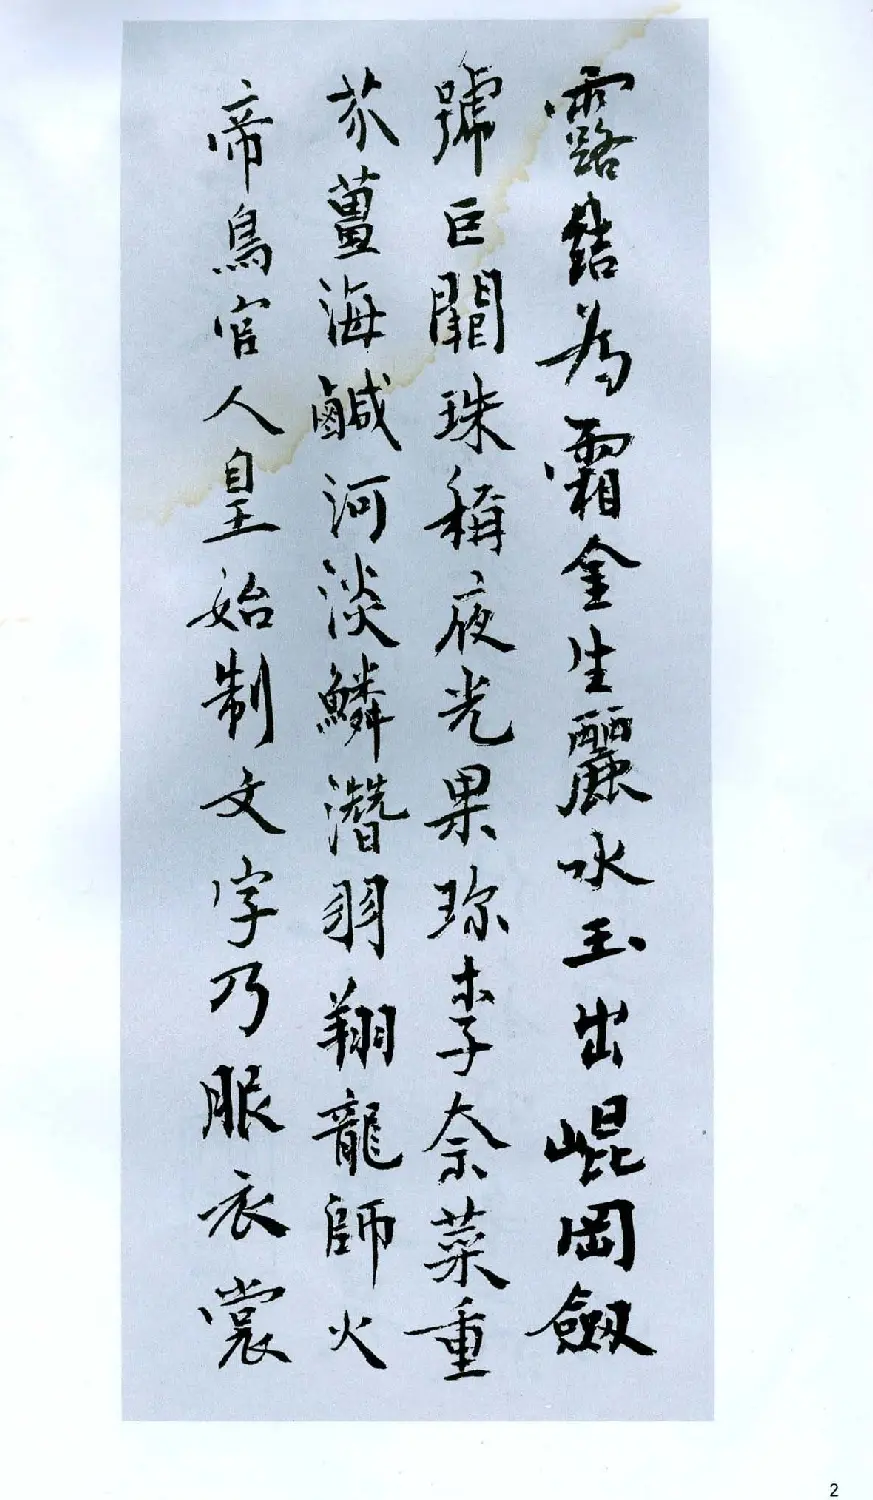 露結為霜金生麗水玉出崐岡劔
號巨闕珠稱夜光果珍李奈菜重
芥薑海鹹河淡鱗潛羽翔龍師火
帝鳥官人皇始制文字乃服衣裳
2